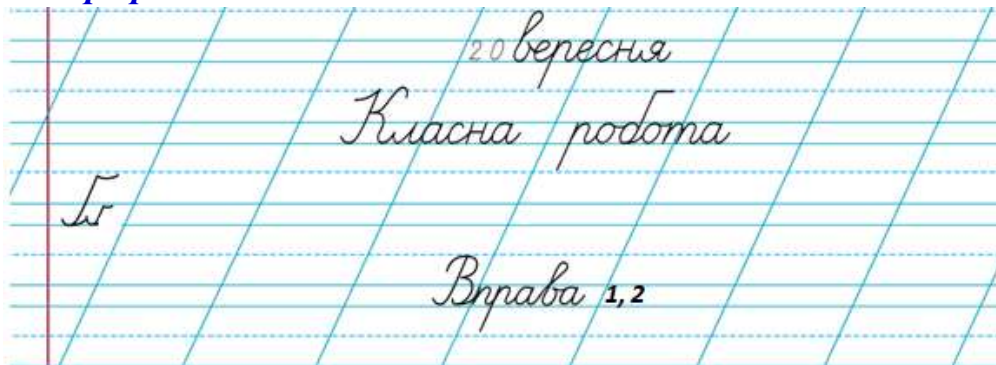 20 вересня
Класна робота
Гг
Вправа 1, 2